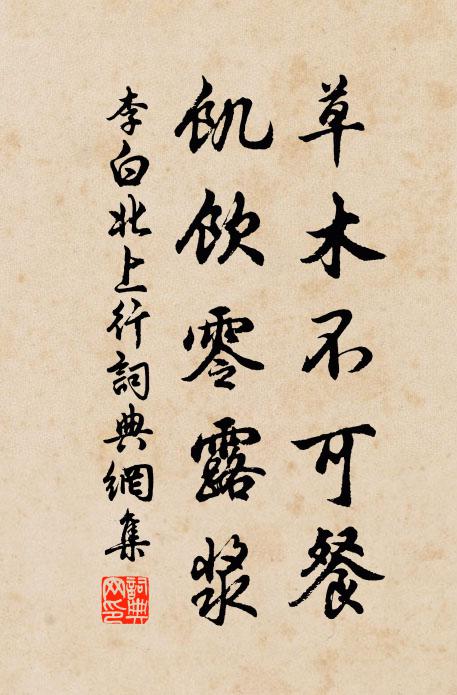 草木不可餐
飢飲零露漿
李白北上行詞典網集
詞典网印